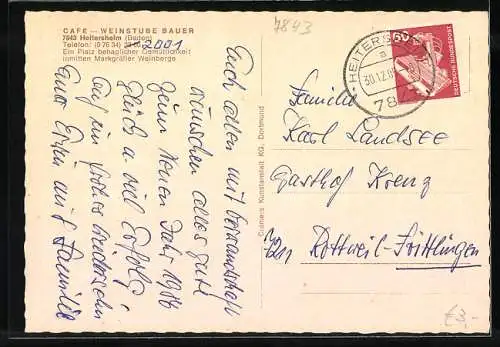 CAFE — WEINSTUBE BAUER
7843 Heitersheim (Baden)
Telefon: (0 76 34) 2001
Ein Platz behaglicher Gemütlichkeit
inmitten Markgräfler Weinberge
Euch allen mit Verwandtschaft
wünschen alles gute
zum Neuen Jahr 19
Glück u viel Erfolg!
auf ein frohes Wiedersehn
Erwin mit Familie
Cramers Kunstanstalt KG, Dortmund
7843
HEITERS
a
30.12.
78
60
DEUTSCHE BUNDESPOST
Familie
Karl Landsee
Gasthof Kreuz
7211
Rottweil-Frittlingen
€3,-